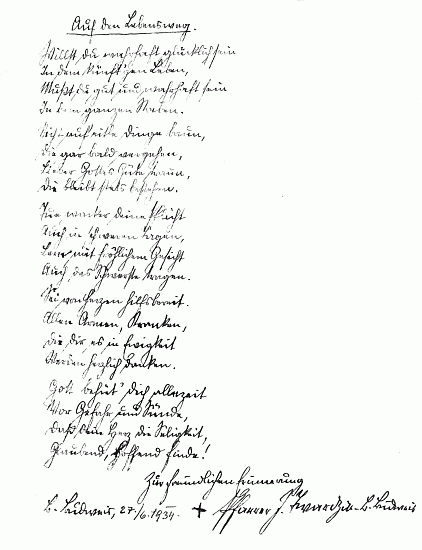 Auf den Lebensweg.
Willst du wahrhaft glücklich sein
In dem künft'gen Leben,
Mußt du gut und wahrhaft sein
In dem ganzen
Nicht auf eitle Dinge baun,
Die gar bald vergehen,
Lieber Gottes Güte traun,
Die bleibt stets bestehen.
Tue munter deine Pflicht
Auch in schweren Tagen,
Lern mit fröhlichem Gesicht
Auch das Schwerste tragen.
Sei von Herzen hilfsbereit
Allen Armen, Kranken,
Die dir es in Ewigkeit
Werden herzlich danken.
Gott behüt' dich allezeit
Vor Gefahr und Sünde,
Daß dein Herz die Seligkeit,
Glaubend, hoffend finde!
Zur freundlichen Erinnerung
B.-Budweis, 27/6. 1934. + Pfarrer J. B. Budweis